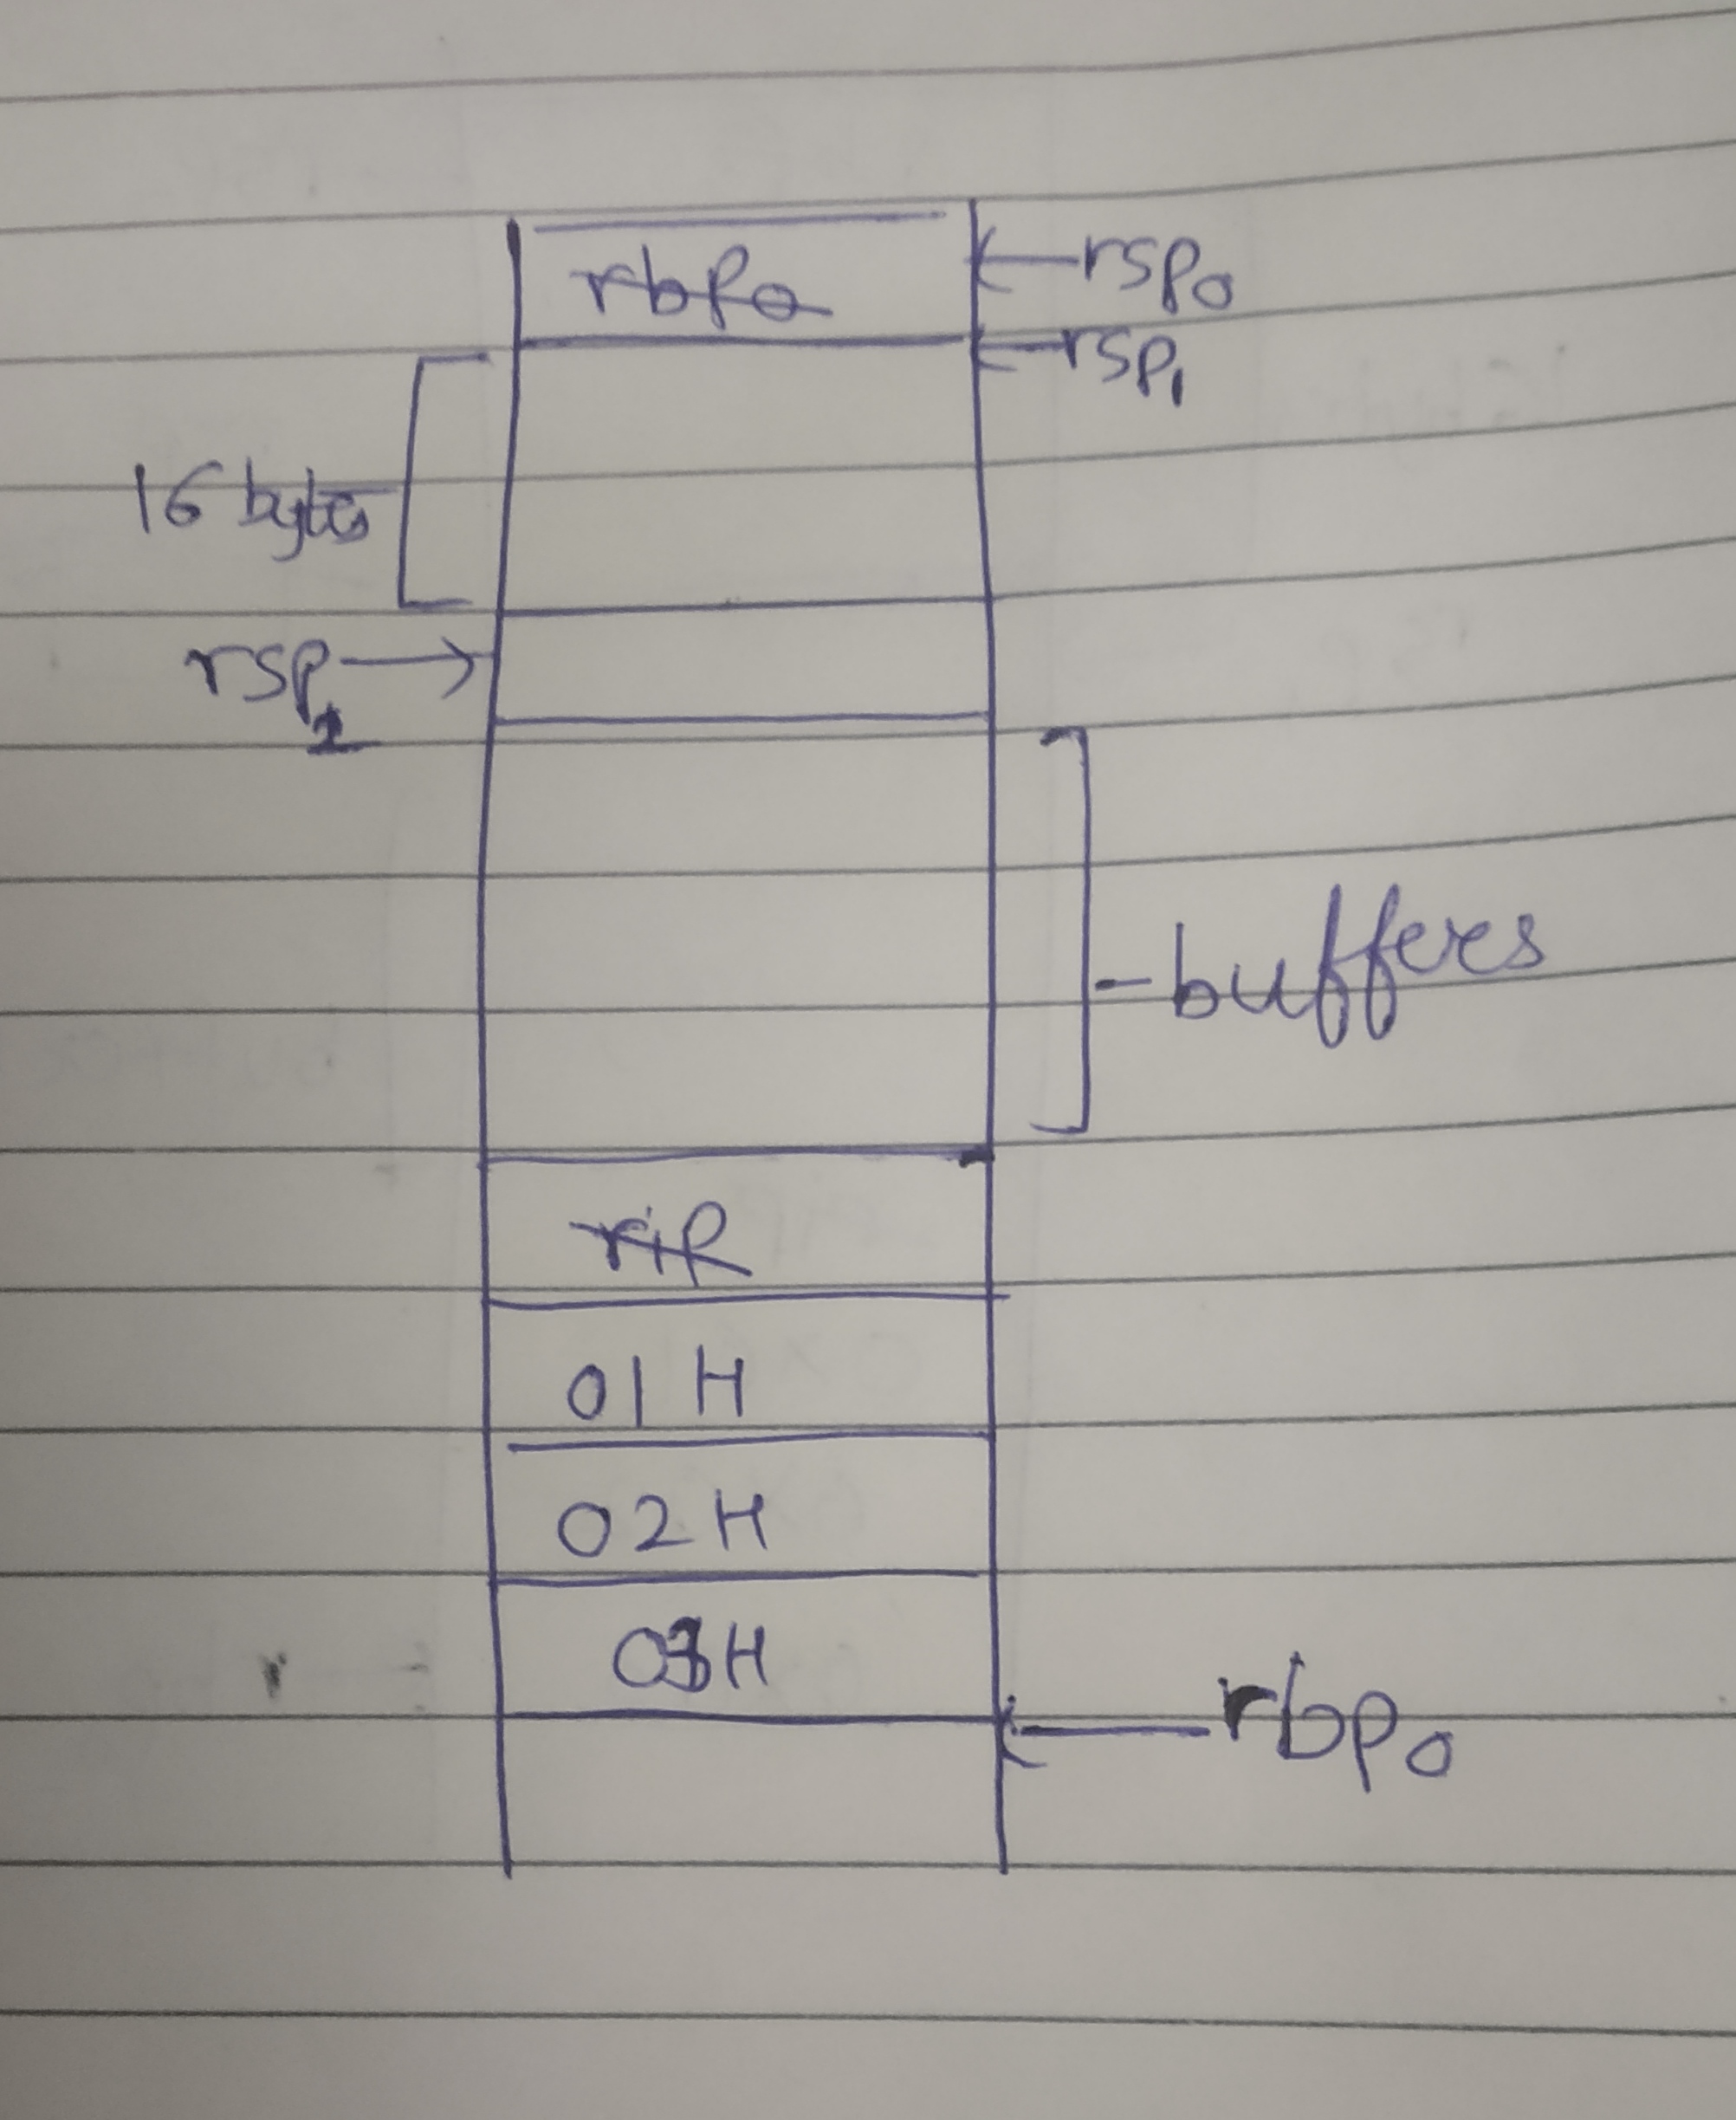 rbp0 ← rsp0
← rsp1
16 bytes
rsp2 →
- buffers
rip
01H
02H
03H
← rbp0